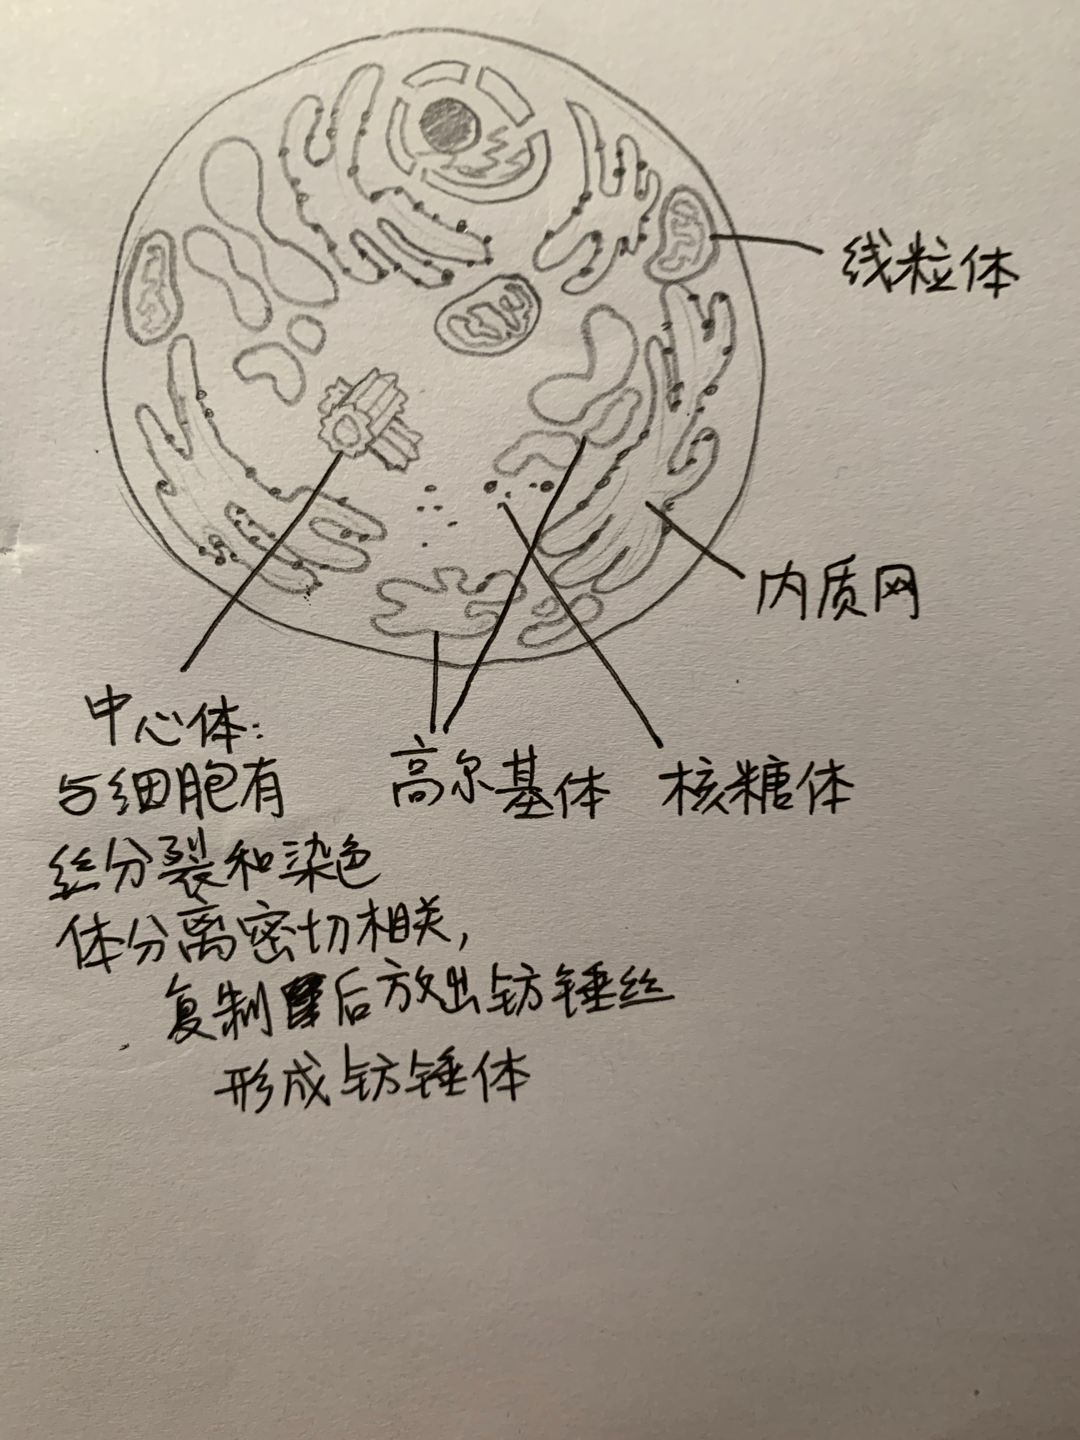 线粒体
内质网
中心体:
与细胞有
丝分裂和染色
体分离密切相关,
复制后放出纺锤丝
形成纺锤体
高尔基体
核糖体